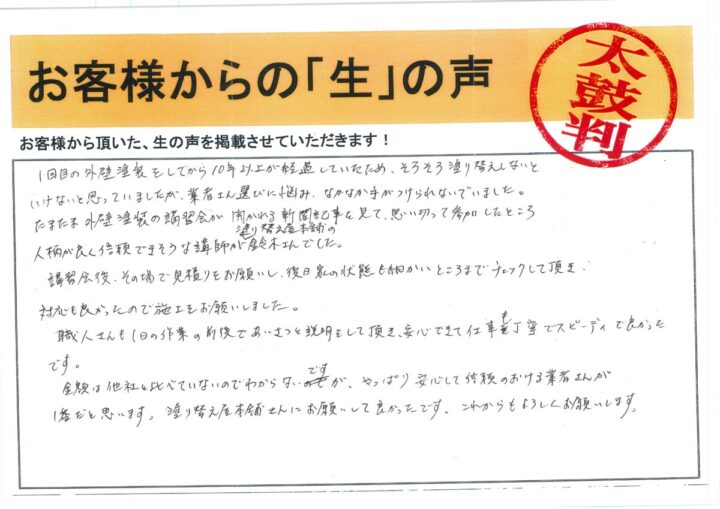 お客様からの「生」の声
太鼓判
お客様から頂いた、生の声を掲載させていただきます！
1回目の外壁塗装をしてから10年以上が経過していたため、そろそろ塗り替えしないと
いけないと思っていましたが、業者さん選びに悩み、なかなか手がつけられないでいました。
たまたま外壁塗装の講習会が開かれる新聞記事を見て、思い切って参加したところ
塗り替え屋本舗の
人柄が良く信頼できそうな講師が鈴木さんでした。
講習会後、その場で見積りをお願いし、後日家の状態も細かいところまでチェックして頂き、
対応も良かったので施工をお願いしました。
職人さんも1日の作業の前後であいさつと説明をして頂き、安心できて仕事も丁寧でスピーディで良かった
です。
金額は他社と比べていないのでわからないですが、やっぱり安心して信頼のおける業者さんが
1番だと思います。塗り替え屋本舗さんにお願いして良かったです。これからもよろしくお願いします。